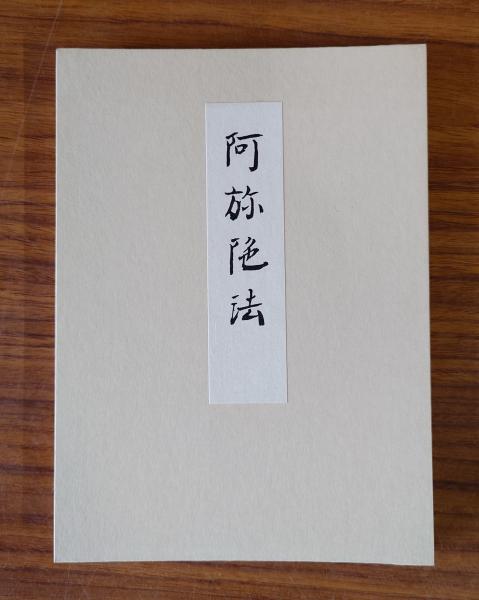 阿弥陀法